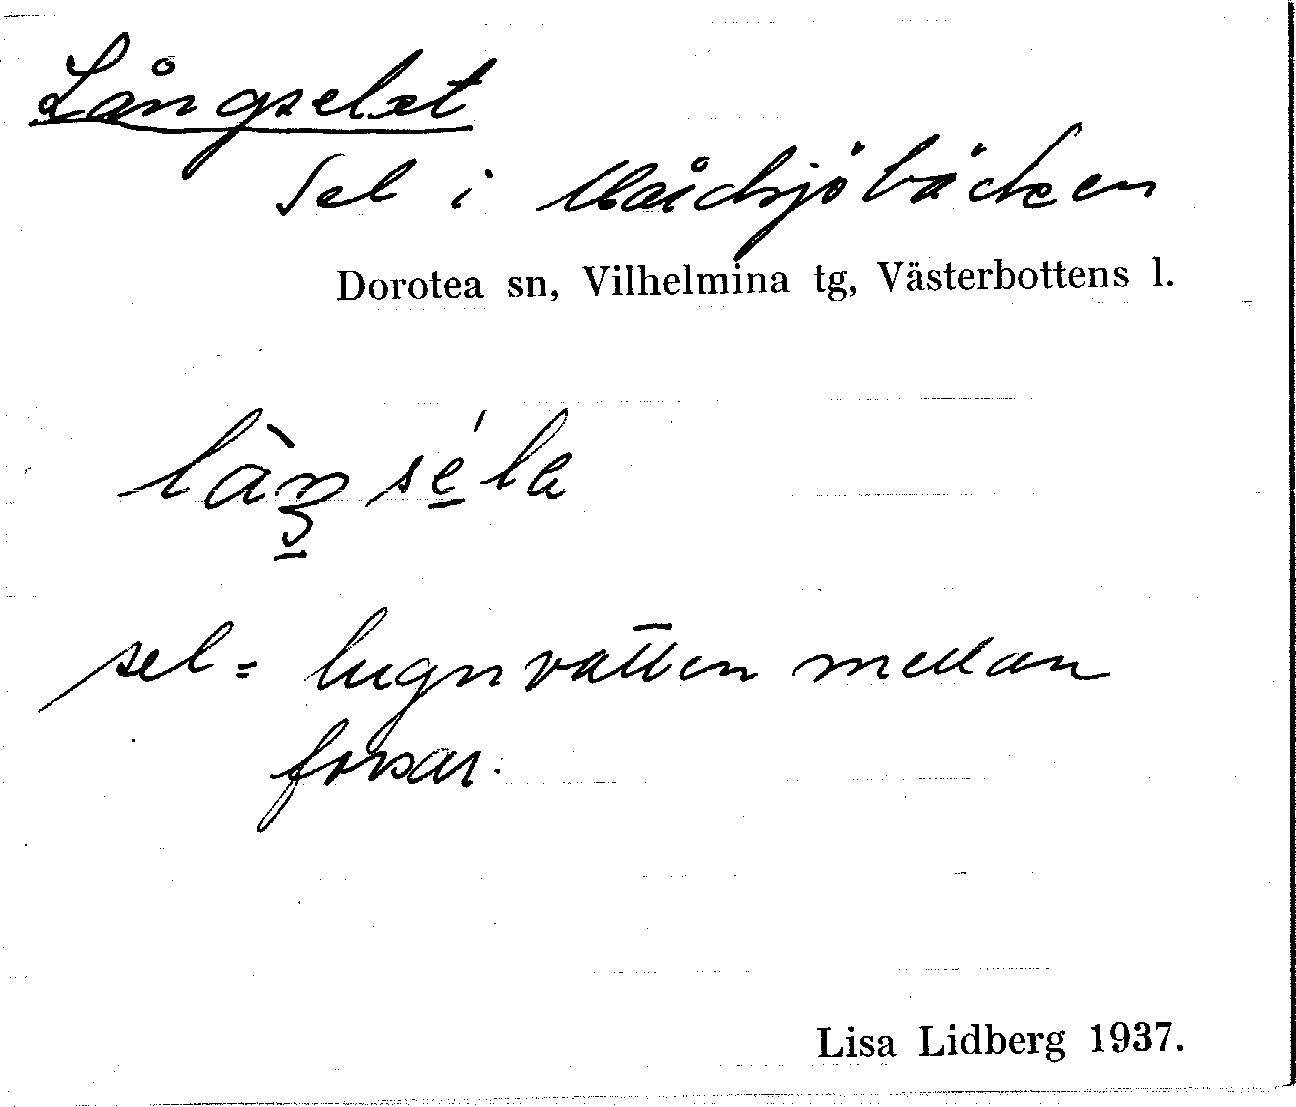 Långselet
Sel i
Dorotea sn, Vilhelmina tg, Västerbottens l.
sel = lugnvatten mellan
forsar.
Lisa Lidberg 1937.